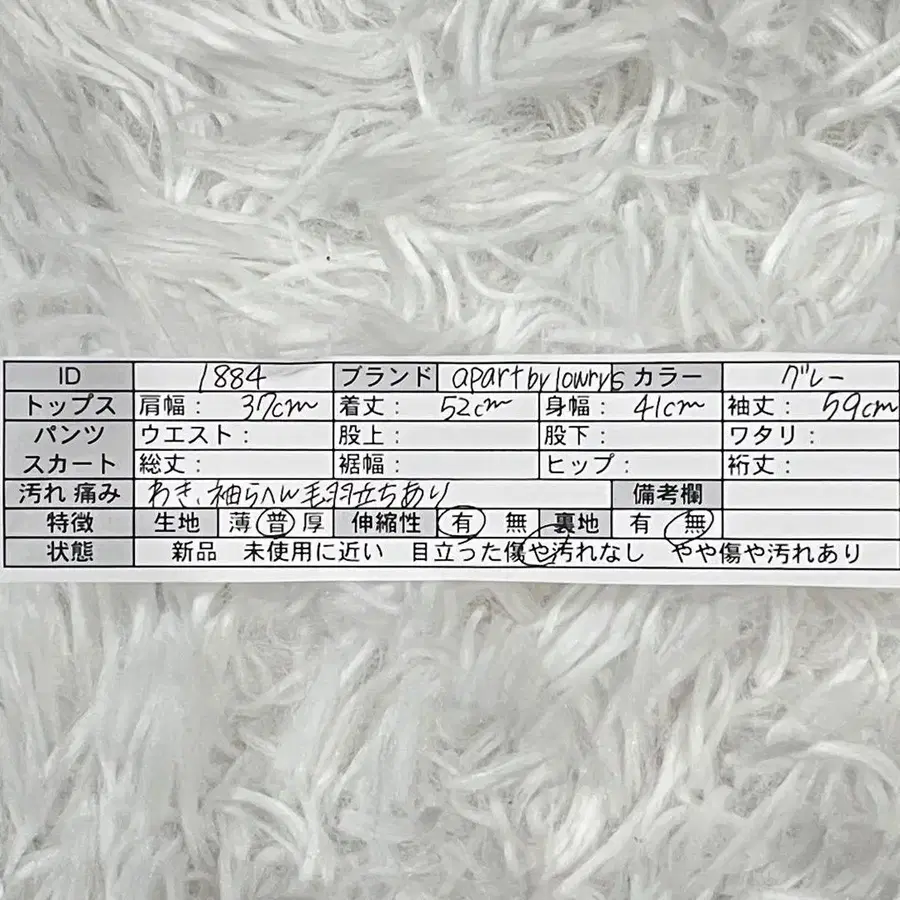 ID 1884 ブランド apart by lowrys カラー グレー
トップス 肩幅： 37cm 着丈： 52cm 身幅： 41cm 袖丈： 59cm
パンツ ウエスト： 股上： 股下： ワタリ：
スカート 総丈： 裾幅： ヒップ： 裄丈：
汚れ 痛み わき、袖らへん毛羽立ちあり 備考欄
特徴 生地 薄 普 厚 伸縮性 有 無 裏地 有 無
状態 新品 未使用に近い 目立った傷や汚れなし やや傷や汚れあり